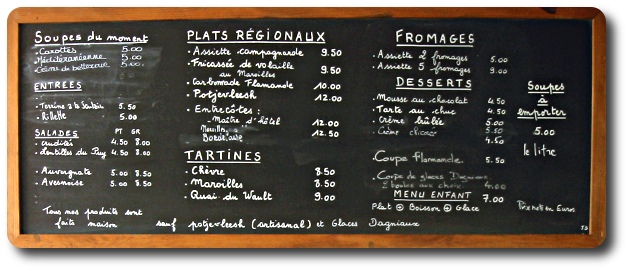 Soupes du moment
Carottes 5.00
Méditerranéenne 5.00
Crème de betterave 5.00
ENTREES
Terrine à la 5.50
Rillette 5.00
SALADES PT GR
Crudités 4.50 8.00
Lentilles du Puy 4.50 8.00
Auvergnate 5.00 8.50
Avesnoise 5.00 8.50
Tous nos produits sont
faits maison sauf potjevleesh (artisanal) et Glaces Dagniaux
PLATS RÉGIONAUX
Assiette campagnarde 9.50
Fricassée de volaille
au Maroilles 9.50
Carbonnade Flamande 10.00
Potjevleesh 12.00
Entrecôtes:
Maître d'hôtel 12.00
12.50
TARTINES
Chèvre 8.50
Maroilles 8.50
Quai du Wault 9.00
FROMAGES
Assiette 2 fromages 5.00
Assiette 5 fromages 9.00
DESSERTS
Mousse au chocolat 4.50
Tarte au sucre 4.50
Crème brûlée 5.00
Crème 5.50
4.50
Coupe Flamande 5.50
Coupe de glaces Dagniaux
2 boules au choix 4.00
MENU ENFANT 7.00
Plat + Boisson + Glace
Soupes
à
emporter
5.00
le litre
Prix nets en Euros